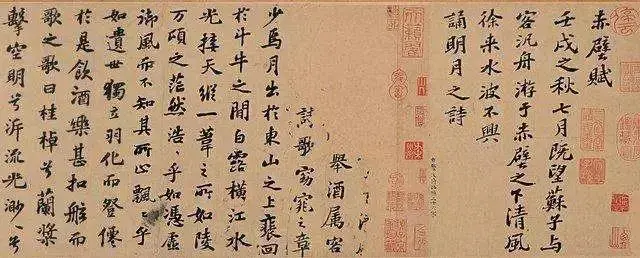 赤壁賦
壬戌之秋七月既望蘇子与
客汎舟游于赤壁之下清風
徐来水波不興
誦明月之詩
舉酒属客
歌窈窕之章
少焉月出於東山之上裵回
於斗牛之間白露橫江水
光接天縱一葦之所如陵
万頃之茫然浩〻乎如憑虛
御風而不知其所止飄〻乎
如遺世獨立羽化而登僊
於是飲酒樂甚扣舷而
歌之歌曰桂棹兮蘭槳
擊空明兮泝流光渺〻兮